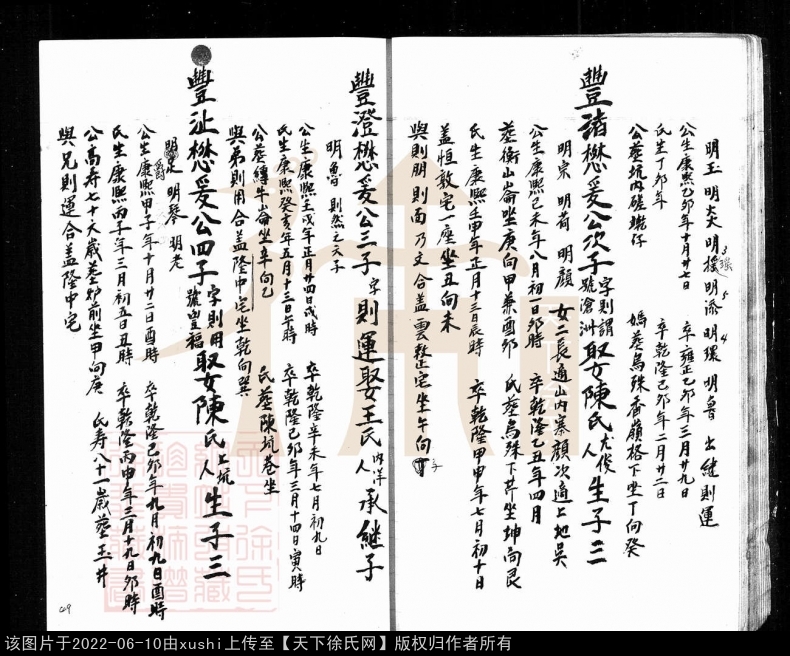 明玉 明炎 明援 明添 明環 明魯 出継則運
公生康熙乙卯年十月廿七日 卒雍正乙卯年三月廿九日
氏生丁卯年 卒乾隆己卯年二月廿二日
公葬坑内 媽葬烏殊香嶺格下坐丁向癸
豐諸懋爰公次子字則謂號滄洲娶陳氏人尤俊生子三
明宗 明荷 明顏 女二長適山内寨顏次適上地吳
公生康熙己未年八月初一日卯時 卒乾隆乙丑年四月
葬衡山崙坐庚向甲兼酉卯 氏葬烏殊下芹坐坤向艮
氏生康熙壬申年正月十三日辰時 卒乾隆甲申年七月初十日
盖恒敦宅一座坐丑向未
與則朋則南乃文合盖雲整宅坐午向子
豐澄懋爰公三子字則運娶王氏人内洋承継子
明魯 則然之六子
公生康熙壬戌年正月廿四日戌時 卒乾隆辛未年七月初九日
氏生康熙癸亥年五月十三日午時 卒乾隆己卯年三月十四日寅時
公葬縛牛崙坐辛向乙 氏葬陳坑巷坐
與弟則用合盖隆中宅坐乾向巽
豐沚懋爰公四子字則用號豊福娶陳氏人上坑生子三
明爵 明琴 明老
公生康熙甲子年十月廿二日酉時 卒乾隆己卯年九月初九日酉時
氏生康熙丙子年三月初五日丑時 卒乾隆丙申年三月十九日卯時
公高寿七十六歲葬炉前坐甲向庚 氏寿八十一歲葬玉井
與兄則運合盖隆中宅
69
该图片于2022-06-10由xushi上传至【天下徐氏网】版权归作者所有